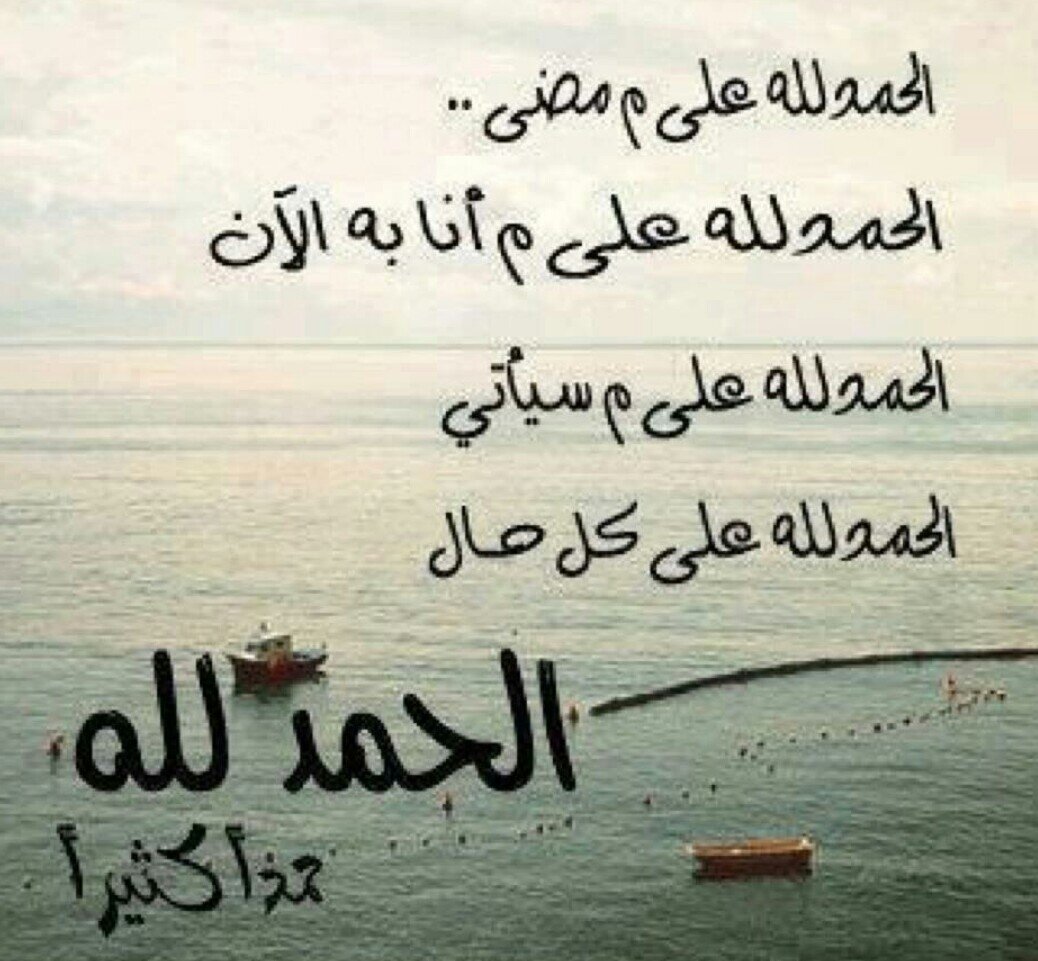 الحمدلله على م مضى ..
الحمدلله على م أنا به الآن
الحمدلله على م سيأتي
الحمدلله على كل حال
الحمد لله
حمداً كثيراً